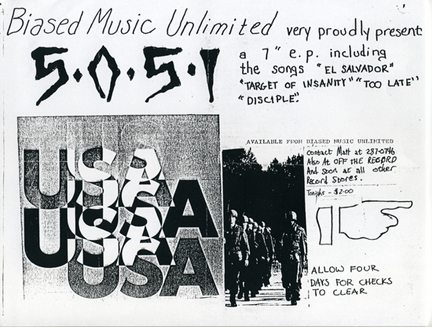 Biased Music Unlimited very proudly present
S.O.S!
a 7" e.p. including
the songs "EL SALVADOR"
"TARGET OF INSANITY" "TOO LATE"
"DISCIPLE".
USA
USA
USA
USA
USA
AVAILABLE FROM BIASED MUSIC UNLIMITED
Contact Matt at 287-0746
Also At OFF THE RECORD
And soon at all other
Record Stores.
Tonight - $2.00
ALLOW FOUR
DAYS FOR CHECKS
TO CLEAR